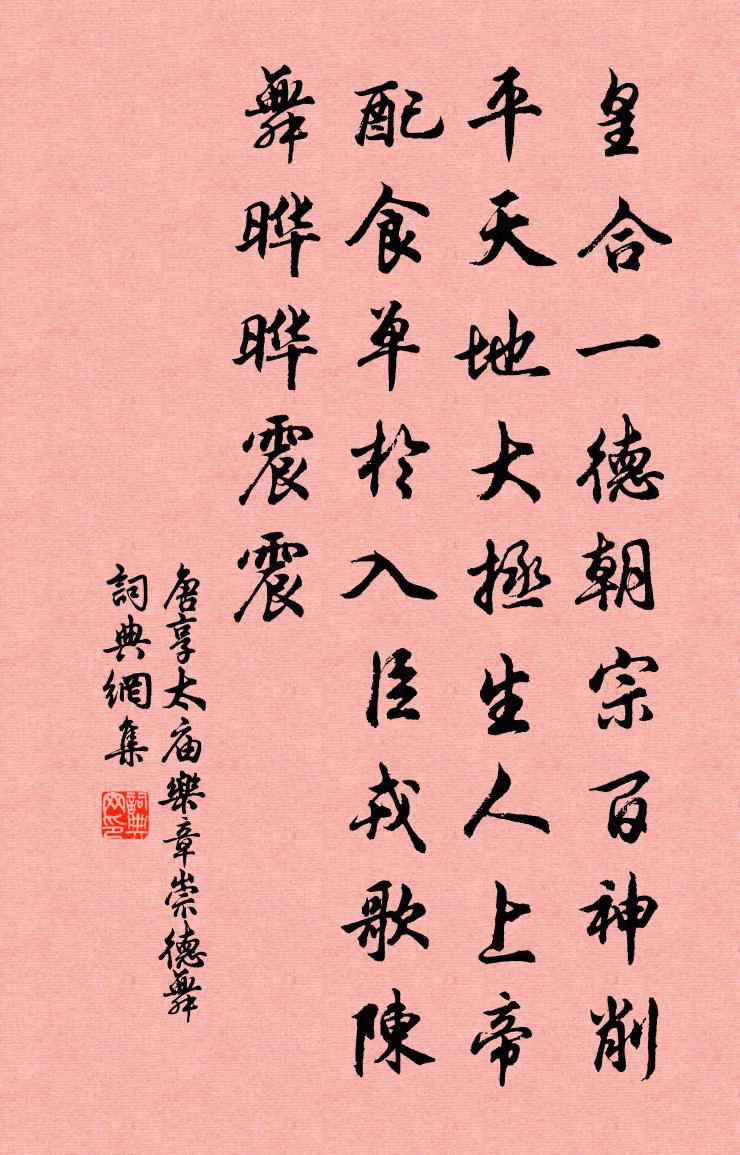 皇合一德朝宗百神削
平天地大拯生人上帝
配食单於入臣戎歌陳
舞晔晔震震
唐享太庙樂章崇德舞
詞典網集
詞典
网印